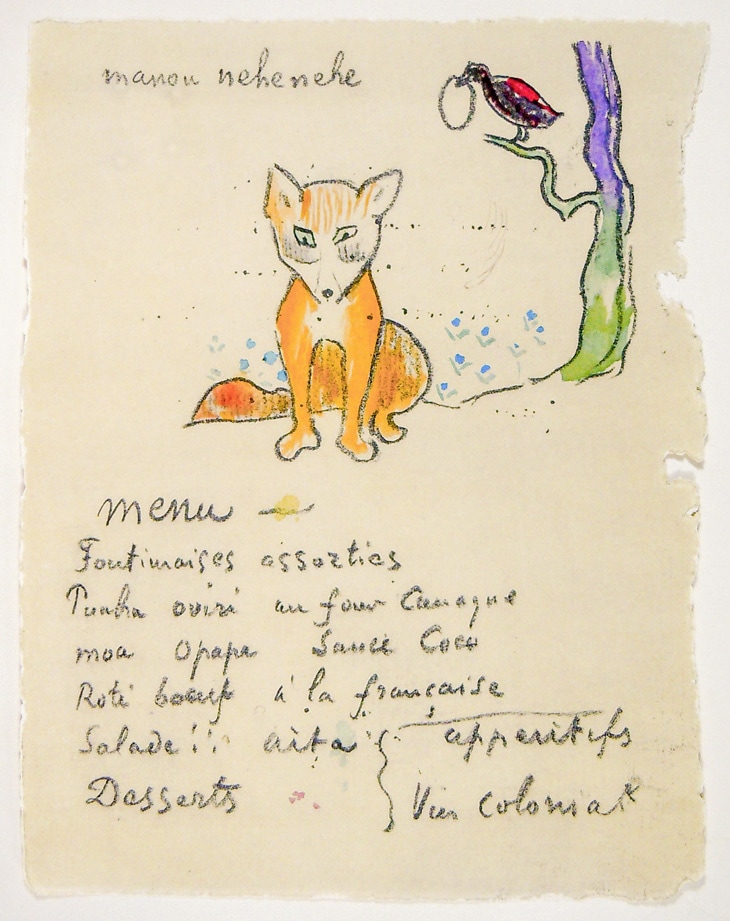 manou nehenehe
menu
Foutimaises assorties
Puaha oviri au four Canaque
moa Opape Sauce Coco
Roti boeuf à la française
Salade!! aita
apperitifs
Desserts
Vin colonial